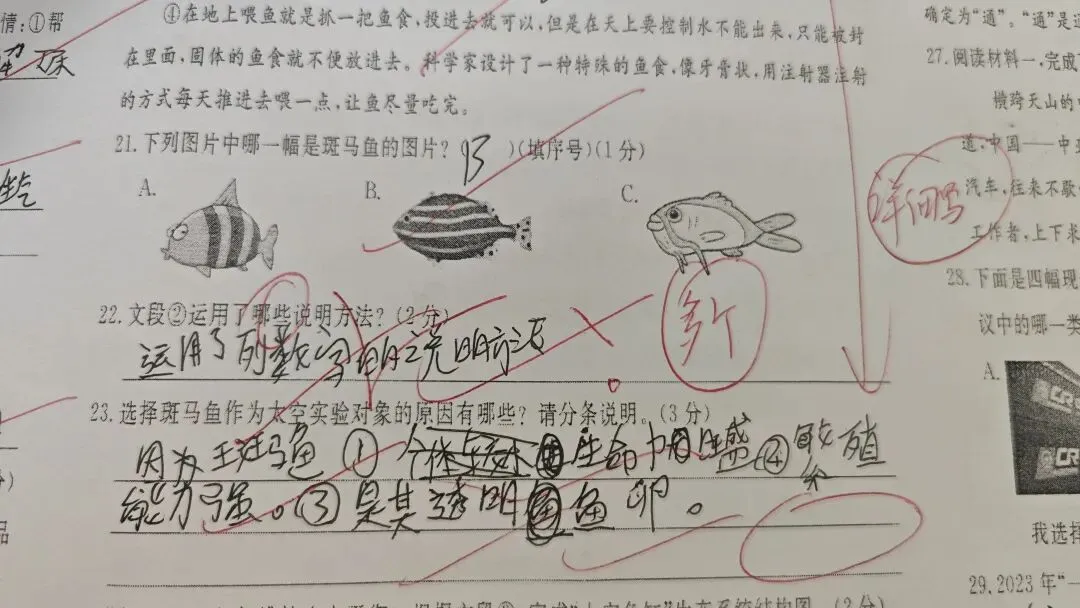 情：①帮
④在地上喂鱼就是抓一把鱼食，投进去就可以，但是在天上要控制水不能出来，只能被封
在里面，固体的鱼食就不便放进去。科学家设计了一种特殊的鱼食，像牙膏状，用注射器注射
的方式每天推进去喂一点，让鱼尽量吃完。
21.下列图片中哪一幅是斑马鱼的图片？( B )(填序号)(1分)
A.
B.
C.
22.文段②运用了哪些说明方法？(2分)
运用了列数字的说明方法
多个
23.选择斑马鱼作为太空实验对象的原因有哪些？请分条说明。(3分)
因为斑马鱼①生命力旺盛②繁殖
能力强。③是其透明鱼卵。
详细写
确定为“通”。“通”是
27.阅读材料一，完成
横跨天山的
道，中国——中
汽车，往来不歇
工作者，上下求
28.下面是四幅现
议中的哪一类
A.
CR
CR
我选择
29.2023年“一